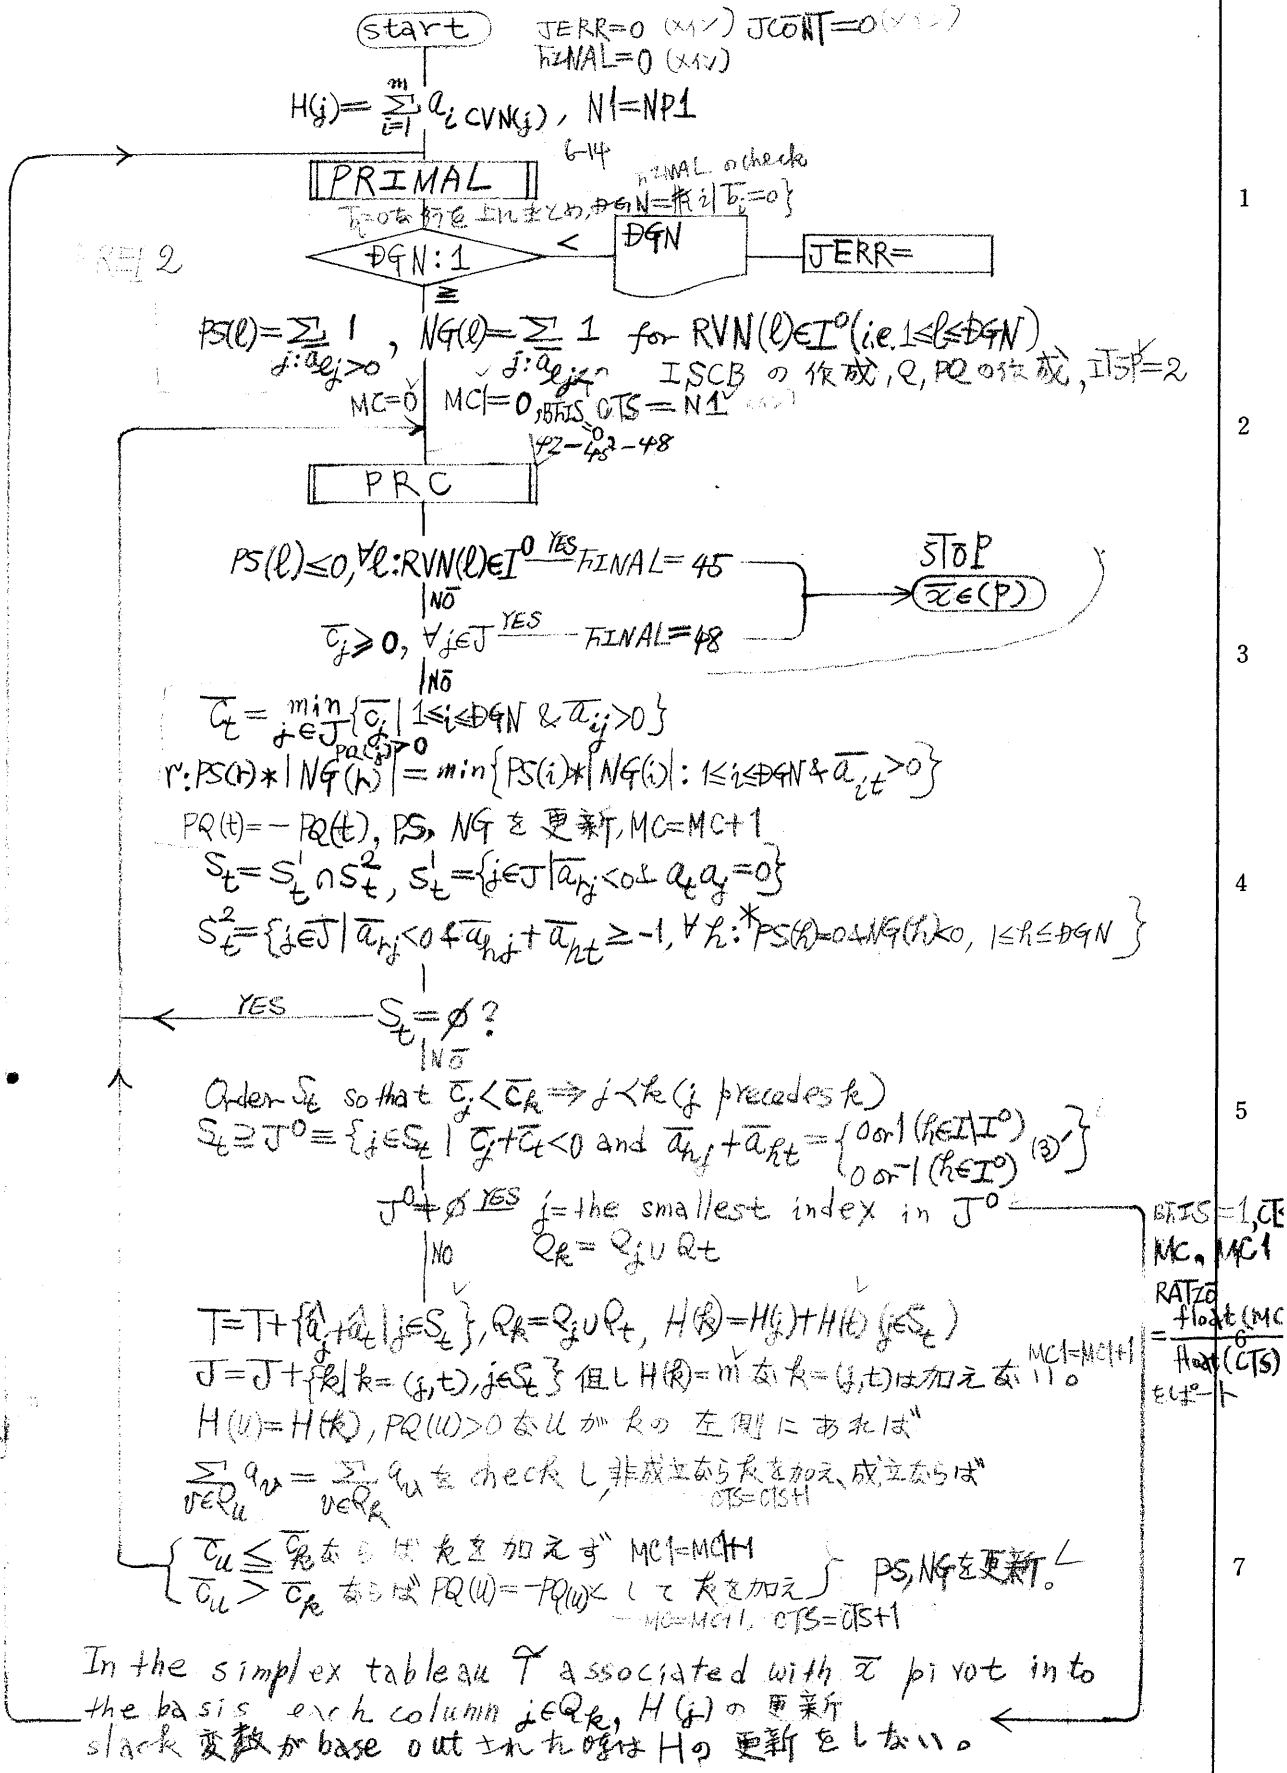 start JERR=0 (メイン) JCONT=0 (メイン)
FINAL=0 (メイン)
H(j)=∑_{i=1}^{m} a_{i CVN(j)}, N1=NP1
6-14
PRIMAL
FINAL のcheck
b̄ᵢ=0な行を上にまとめ, DGN=#{i|b̄ᵢ=0}
1
DGN:1 < DGN JERR=
2
≧
PS(ℓ)=∑_{j:ā_{ℓj}>0} 1, NG(ℓ)=∑_{j:ā_{ℓj}<0} 1 for RVN(ℓ)∈I⁰(i.e. 1≤ℓ≤DGN)
ISCB の作成, Q, PQの作成, ITSP=2
MC=0 MC1=0, BFIS=0 CTS=N1
2
42-45-48
PRC
PS(ℓ)≤0, ∀ℓ:RVN(ℓ)∈I⁰ YES FINAL=45
STOP
x̄∈(P)
NO
c̄_j≥0, ∀j∈J YES FINAL=48
3
NO
c̄_t=min_{j∈J, PQ(j)>0}{c̄_j|1≤i≤DGN & ā_{ij}>0}
r:PS(r)*|NG(r)|=min{PS(i)*|NG(i)|:1≤i≤DGN & ā_{it}>0}
PQ(t)=-PQ(t), PS, NG を更新, MC=MC+1
S_t=S_t¹∩S_t², S_t¹={j∈J|ā_{rj}<0 & a_t a_j=0}
4
S_t²={j∈J|ā_{rj}<0 & ā_{hj}+ā_{ht}≥-1, ∀h:*PS(h)=0&NG(h)<0, 1≤h≤DGN}
YES S_t=∅?
NO
Order S_t so that c̄_j<c̄_k⇒j<k (j precedes k)
5
S_t⊇J⁰≡{j∈S_t|c̄_j+c̄_t<0 and ā_{hj}+ā_{ht}={0 or 1 (h∈I\I⁰)
0 or -1 (h∈I⁰) (3)′}
J⁰≠∅ YES j=the smallest index in J⁰
NO Q_k=Q_j∪Q_t
BFIS=1,
MC, MC1
RATIO
=float(MC
float(CTS)
をレポート
6
T=T+{â_j+â_t|j∈S_t}, Q_k=Q_j∪Q_t, H(k)=H(j)+H(t) (j∈S_t)
J=J+{k|k=(j,t), j∈S_t} 但しH(k)=mなk=(j,t)は加えない。 MC1=MC1+1
H(u)=H(k), PQ(u)>0なuがkの左側にあれば
∑_{v∈Q_u} a_v=∑_{v∈Q_k} a_v をcheckし,非成立ならkを加え,成立ならば
CTS=CTS+1
c̄_u≦c̄_kならばkを加えず MC1=MC1+1
c̄_u>c̄_kならばPQ(u)=-PQ(u)としてkを加え PS,NGを更新。
7
MC=MC+1, CTS=CTS+1
In the simplex tableau T̃ associated with x̄ pivot into
the basis each column j∈Q_k, H(j)の更新
slack 変数がbase outされた時はHの更新をしない。